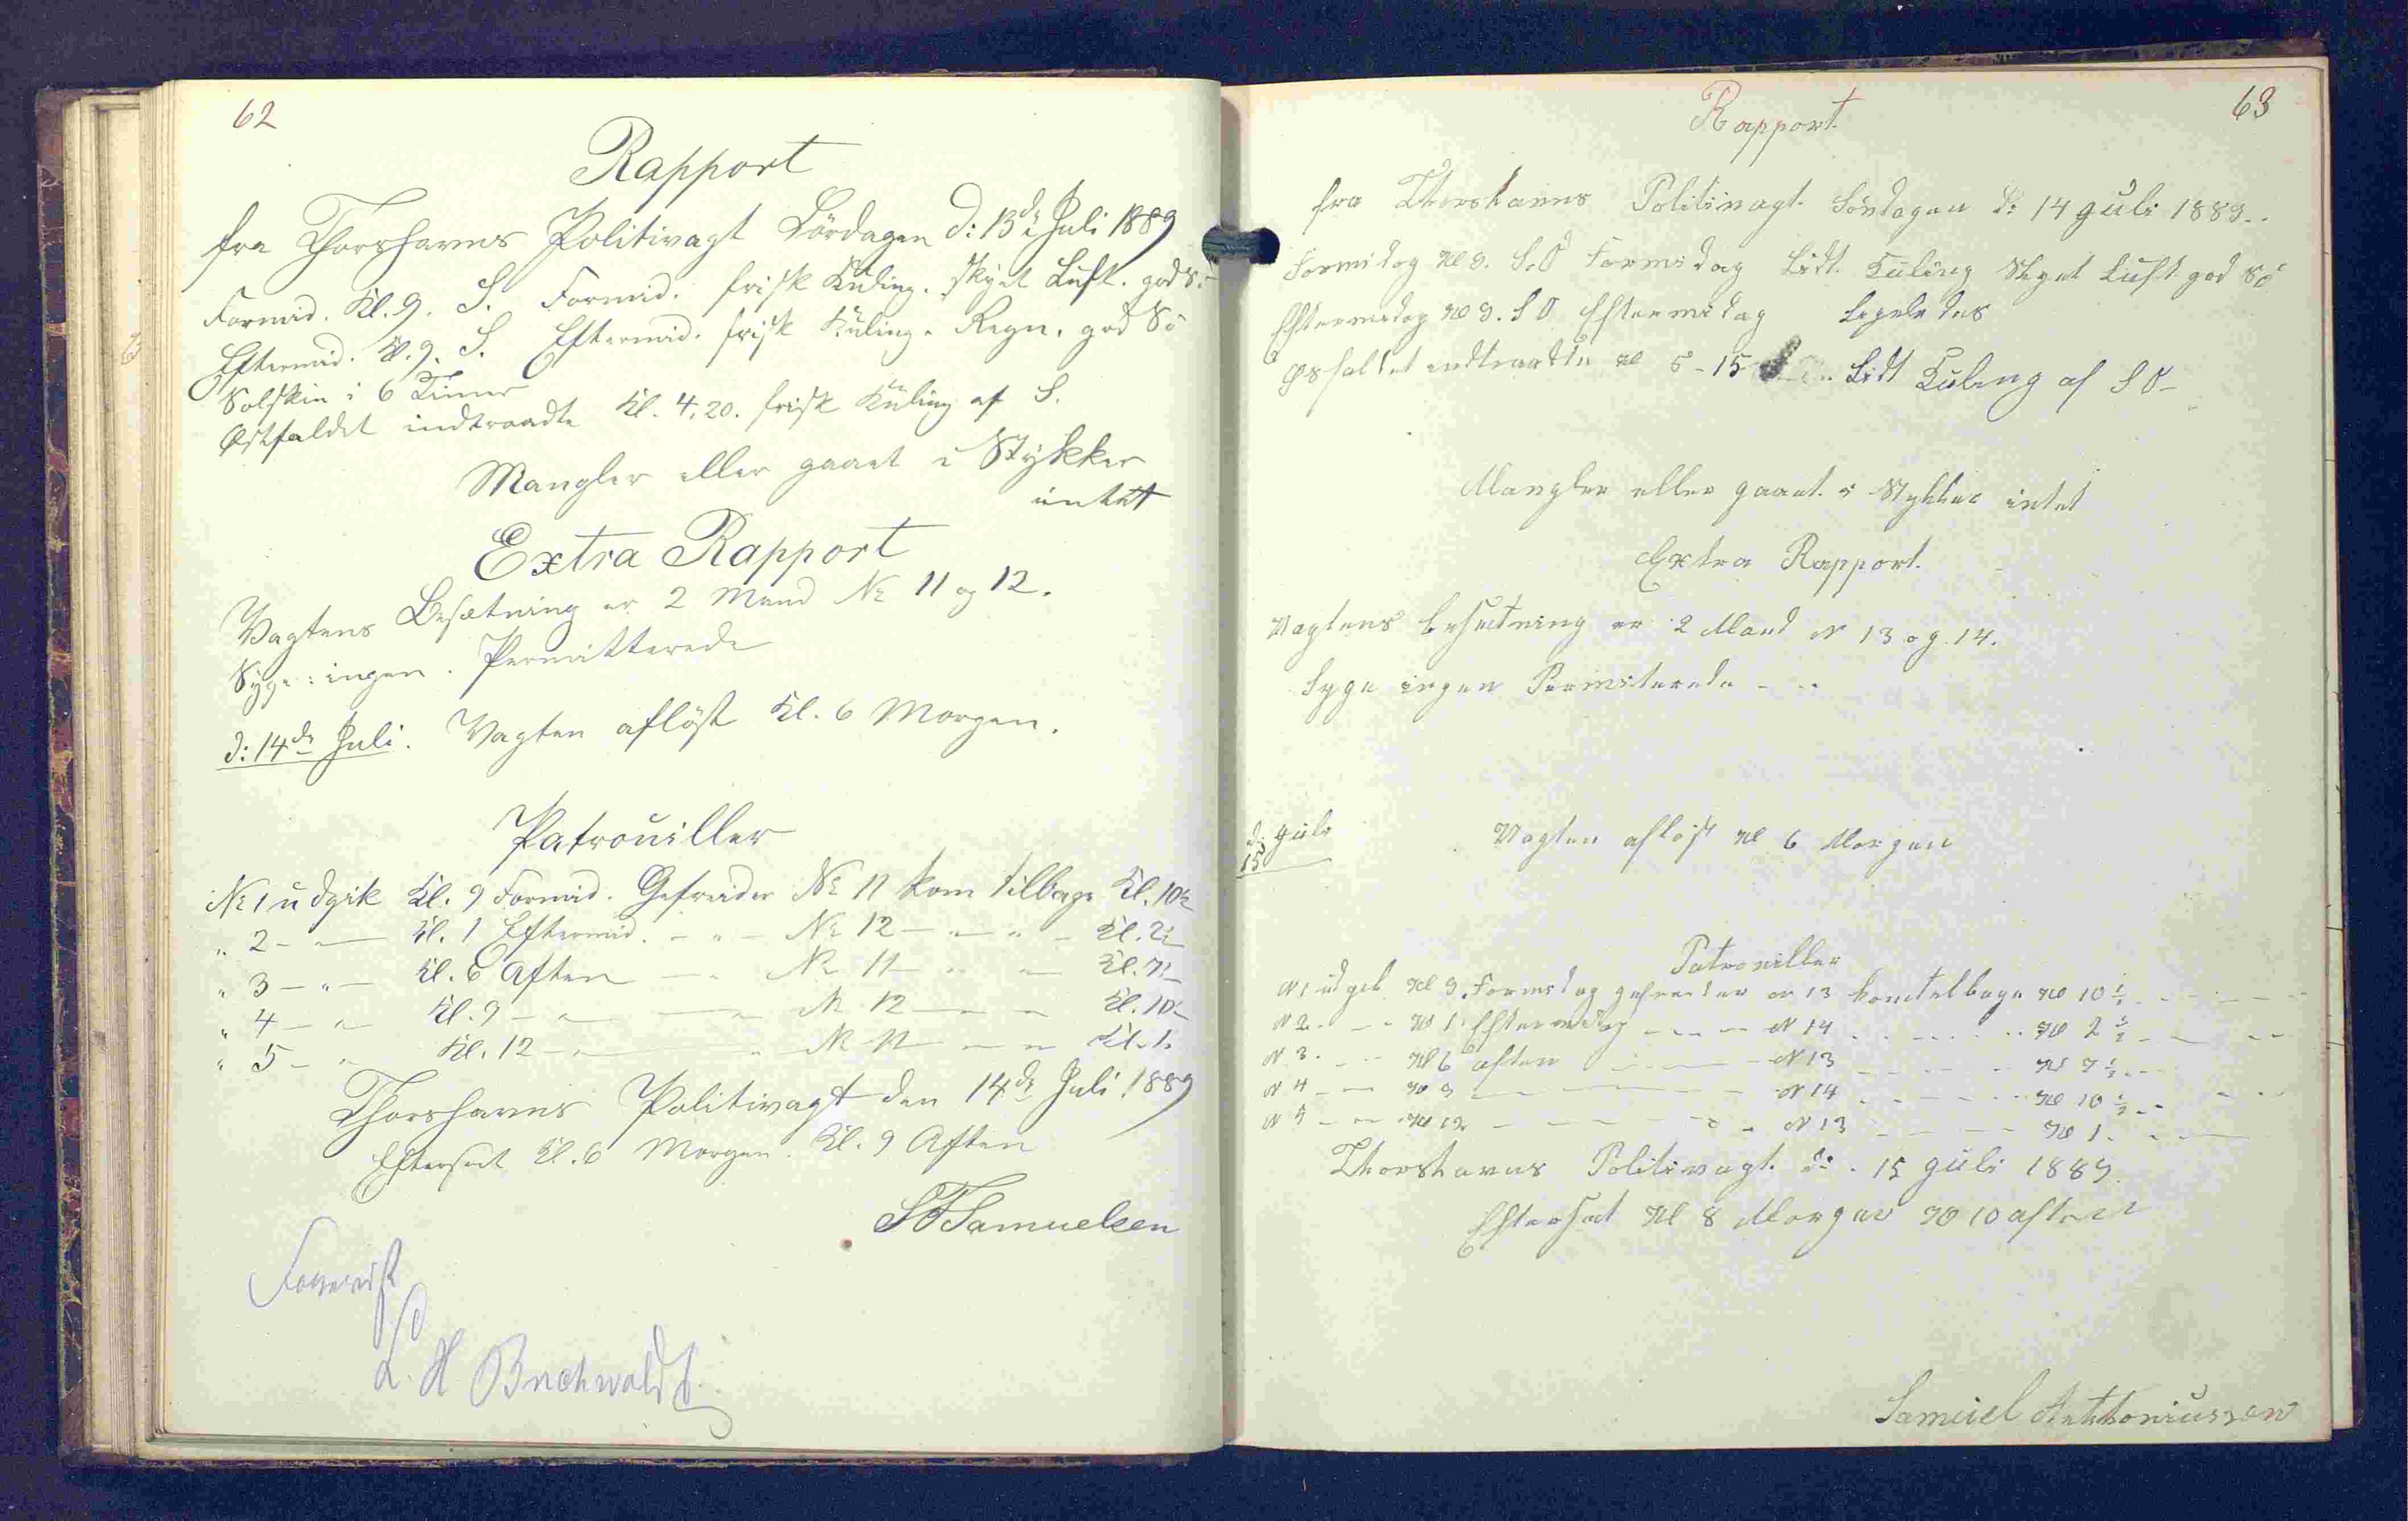 62
Rapport
fra Thorshavns Politivagt Lördagen d: 13de Juli 1889
Formid. Kl. 9. S. Formid. frisk Kuling. Skyet Luft. god Sö
Eftermid. Kl. 9. S. Eftermid. frisk Kuling. Regn. god Sö
Solskin i 6 Timer
Østfaldet indtraadte Kl. 4,20. frisk Kuling af S.
Mangler eller gaaet i Stykker
intet
Extra Rapport
Vagtens Besætning er 2 Mand No 11 og 12.
Syge: ingen. Permitterede
d: 14de Juli. Vagten aflöst Kl. 6 Morgen.
Patrouiller
No 1 udgik Kl. 9 Formid. Gefreider No 11 kom tilbage Kl. 10½
" 2 - " - Kl. 1 Eftermid. - " - No 12 - " - " - Kl. 2½
" 3 - " - Kl. 6 Aften - " No 11 - " - Kl. 7½
" 4 - " - Kl. 9 - " - " No 12 - " - Kl. 10½
" 5 - " Kl. 12 - " - " No 11 - " - Kl. 1
Thorshavns Politivagt den 14de Juli 1889
Efterseet Kl. 6 Morgen. Kl. 9 Aften
Samuelsen
Forevist
L. H Buchwaldt
63
Rapport.
fra Thorshavns Politivagt. Söndagen d: 14 Juli 1889.
Formidag Kl 9. S.O Formidag Lidt Kuling Skyet Luft god Sö
Eftermidag Kl 9. S O Eftermidag Ligeledes
Øsfaldet indtraadte Kl 5-15 Lidt Kuling af S O-
Mangler eller gaaet i Stykker intet
Extra Rapport.
Vagtens besætning er 2 Mand N 13 og 14.
Syge ingen Permiterede - -
d: Juli
15
Vagten aflöst Kl 6 Morgen
Patrouiller
N 1 udgik Kl 9. Formidag gefreider N 13 kom telbage Kl 10 ½
N 2. - - Kl 1 Eftermidag - - - N 14 - - - Kl 2 ½
N 3. - - Kl 6 aften - - N 13 - - - Kl 7 ½
N 4 - - Kl 9 - - N 14 - - - Kl 10 ½
N 5 - - Kl 12 - - - N 13 - - - Kl 1.
Thorshavns Politivagt. d: 15 Juli 1889.
Efterset Kl 8 Morgen Kl 10 aften
Samuel Anthoniussen